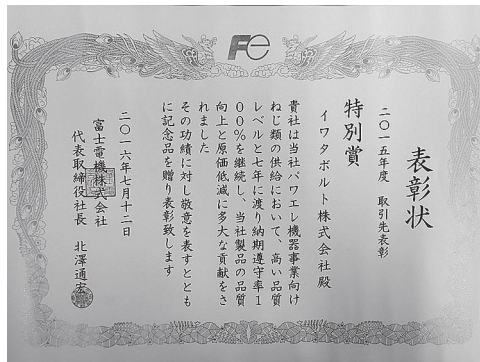 Fe
表彰状
二〇一五年度 取引先表彰
特別賞
イワタボルト株式会社殿
貴社は当社パワエレ機器事業向け
ねじ類の供給において、高い品質
レベルと七年に渡り納期遵守率1
00%を継続し、当社製品の品質
向上と原価低減に多大な貢献をさ
れました
その功績に対し敬意を表すととも
に記念品を贈り表彰致します
二〇一六年七月十二日
富士電機株式会社
代表取締役社長 北澤通宏